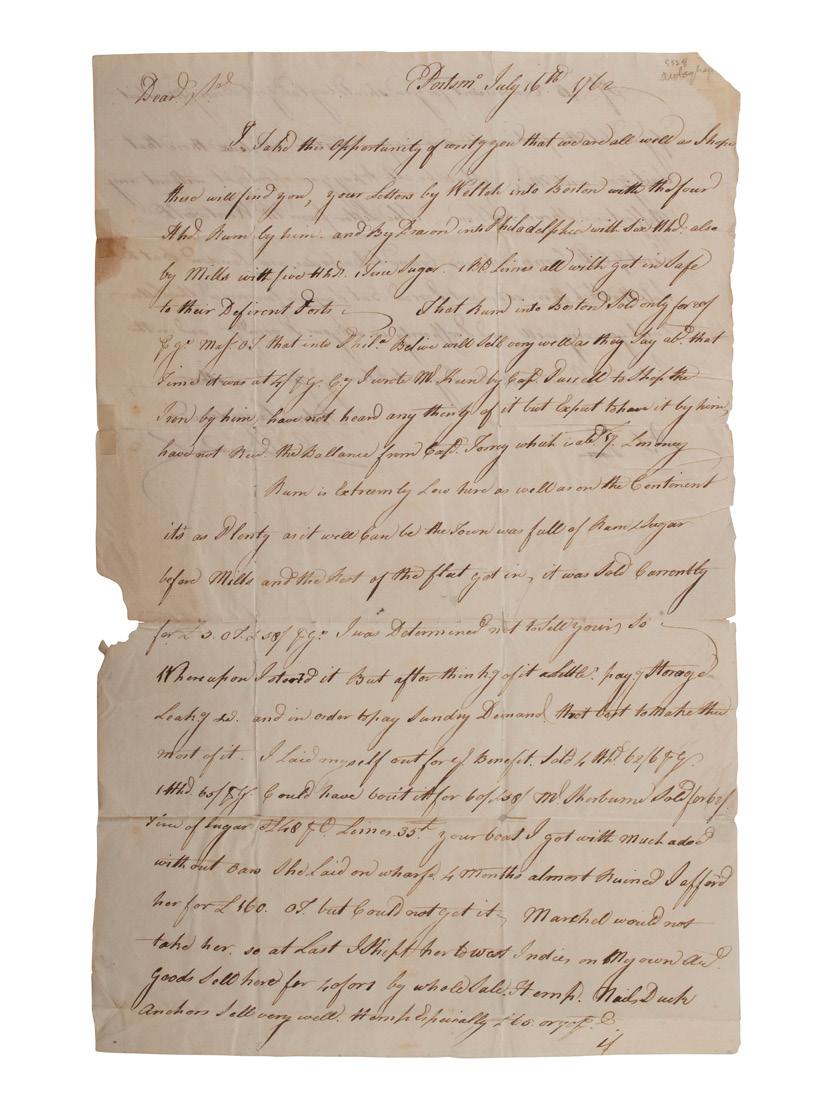 5528
autograph
Portsmº July 16th 1762
Dear Sr.
I Take this Opportunity of writg you that we are all well as I hope
these will find you, your Letters by Welch into Boston with the four
Hhd. Rum by him. and By Deacon into Philadelphia with Six Hhd. also
by Mills with five Hhd. 1 Tirce Sugar. 1 Bb Limes all with got in Safe
to their Defirent Ports That Rum into Boston Sold only for
that into Philª Belive will Sell very well as they Say abt. that
Time it was at 4/ I wrote Mr. Keen by Capt. Russell to Shep the
Iron by him, have not heard any thinkg of it but Expect to have it by him,
have not Recd. the Ballance from Capt. Torrey which is abt.
Rum is Extreemly Low here as well as on the Continent
it's as Plenty as it well Can be the Town was full of Rum & Sugar
before Mills and the Rest of the fleat got in, it was Sold Currently
for £3. O.T. & 58/ I was Determined not to Sell yours So
Whereupon I stored it But after thinkg of it a Little. payg Storage
Leakg &c. and in order to pay Sundry Demand thot best to Make the
most of it. I Laid myself out for yr Benefit. Sold 4 Hhd. 62/6
1 Hhd. 60/ Could have bou't it for 60/ & 58/ Mr. Sherburne Sold for 62/
Tirce of Sugar Limes. 35£. your boat I got with Much adoe
without oars She Laid on wharfe 4 Months almost Ruined I afferd
her for £160. O.T. but Could not get it, Marshel would not
take her. so at Last I Shept her to West Indies on My own Acct.
Goods Sell here for by whole Sale. Hemp. Nails Duck
Anchors Sell very well. Hemp Espicially £65. or